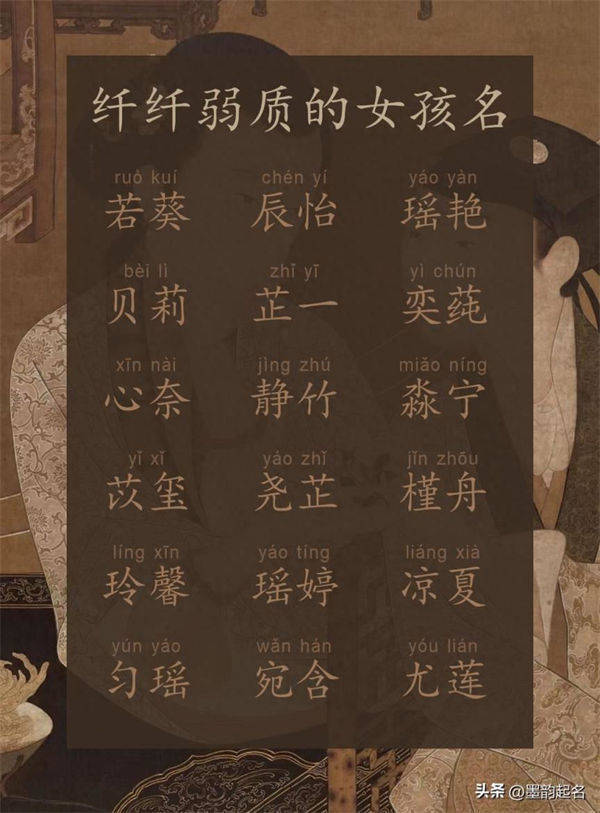 纤纤弱质的女孩名
ruó kuí chén yí yáo yàn
若葵 辰怡 瑶艳
bèi lì zhǐ yī yì chún
贝莉 芷一 奕莼
xīn nài jìng zhú miǎo níng
心奈 静竹 淼宁
yǐ xǐ yáo zhǐ jǐn zhōu
苡玺 尧芷 槿舟
líng xīn yáo tíng liáng xià
玲馨 瑶婷 凉夏
yún yáo wǎn hán yóu lián
匀瑶 宛含 尤莲
头条 @墨韵起名